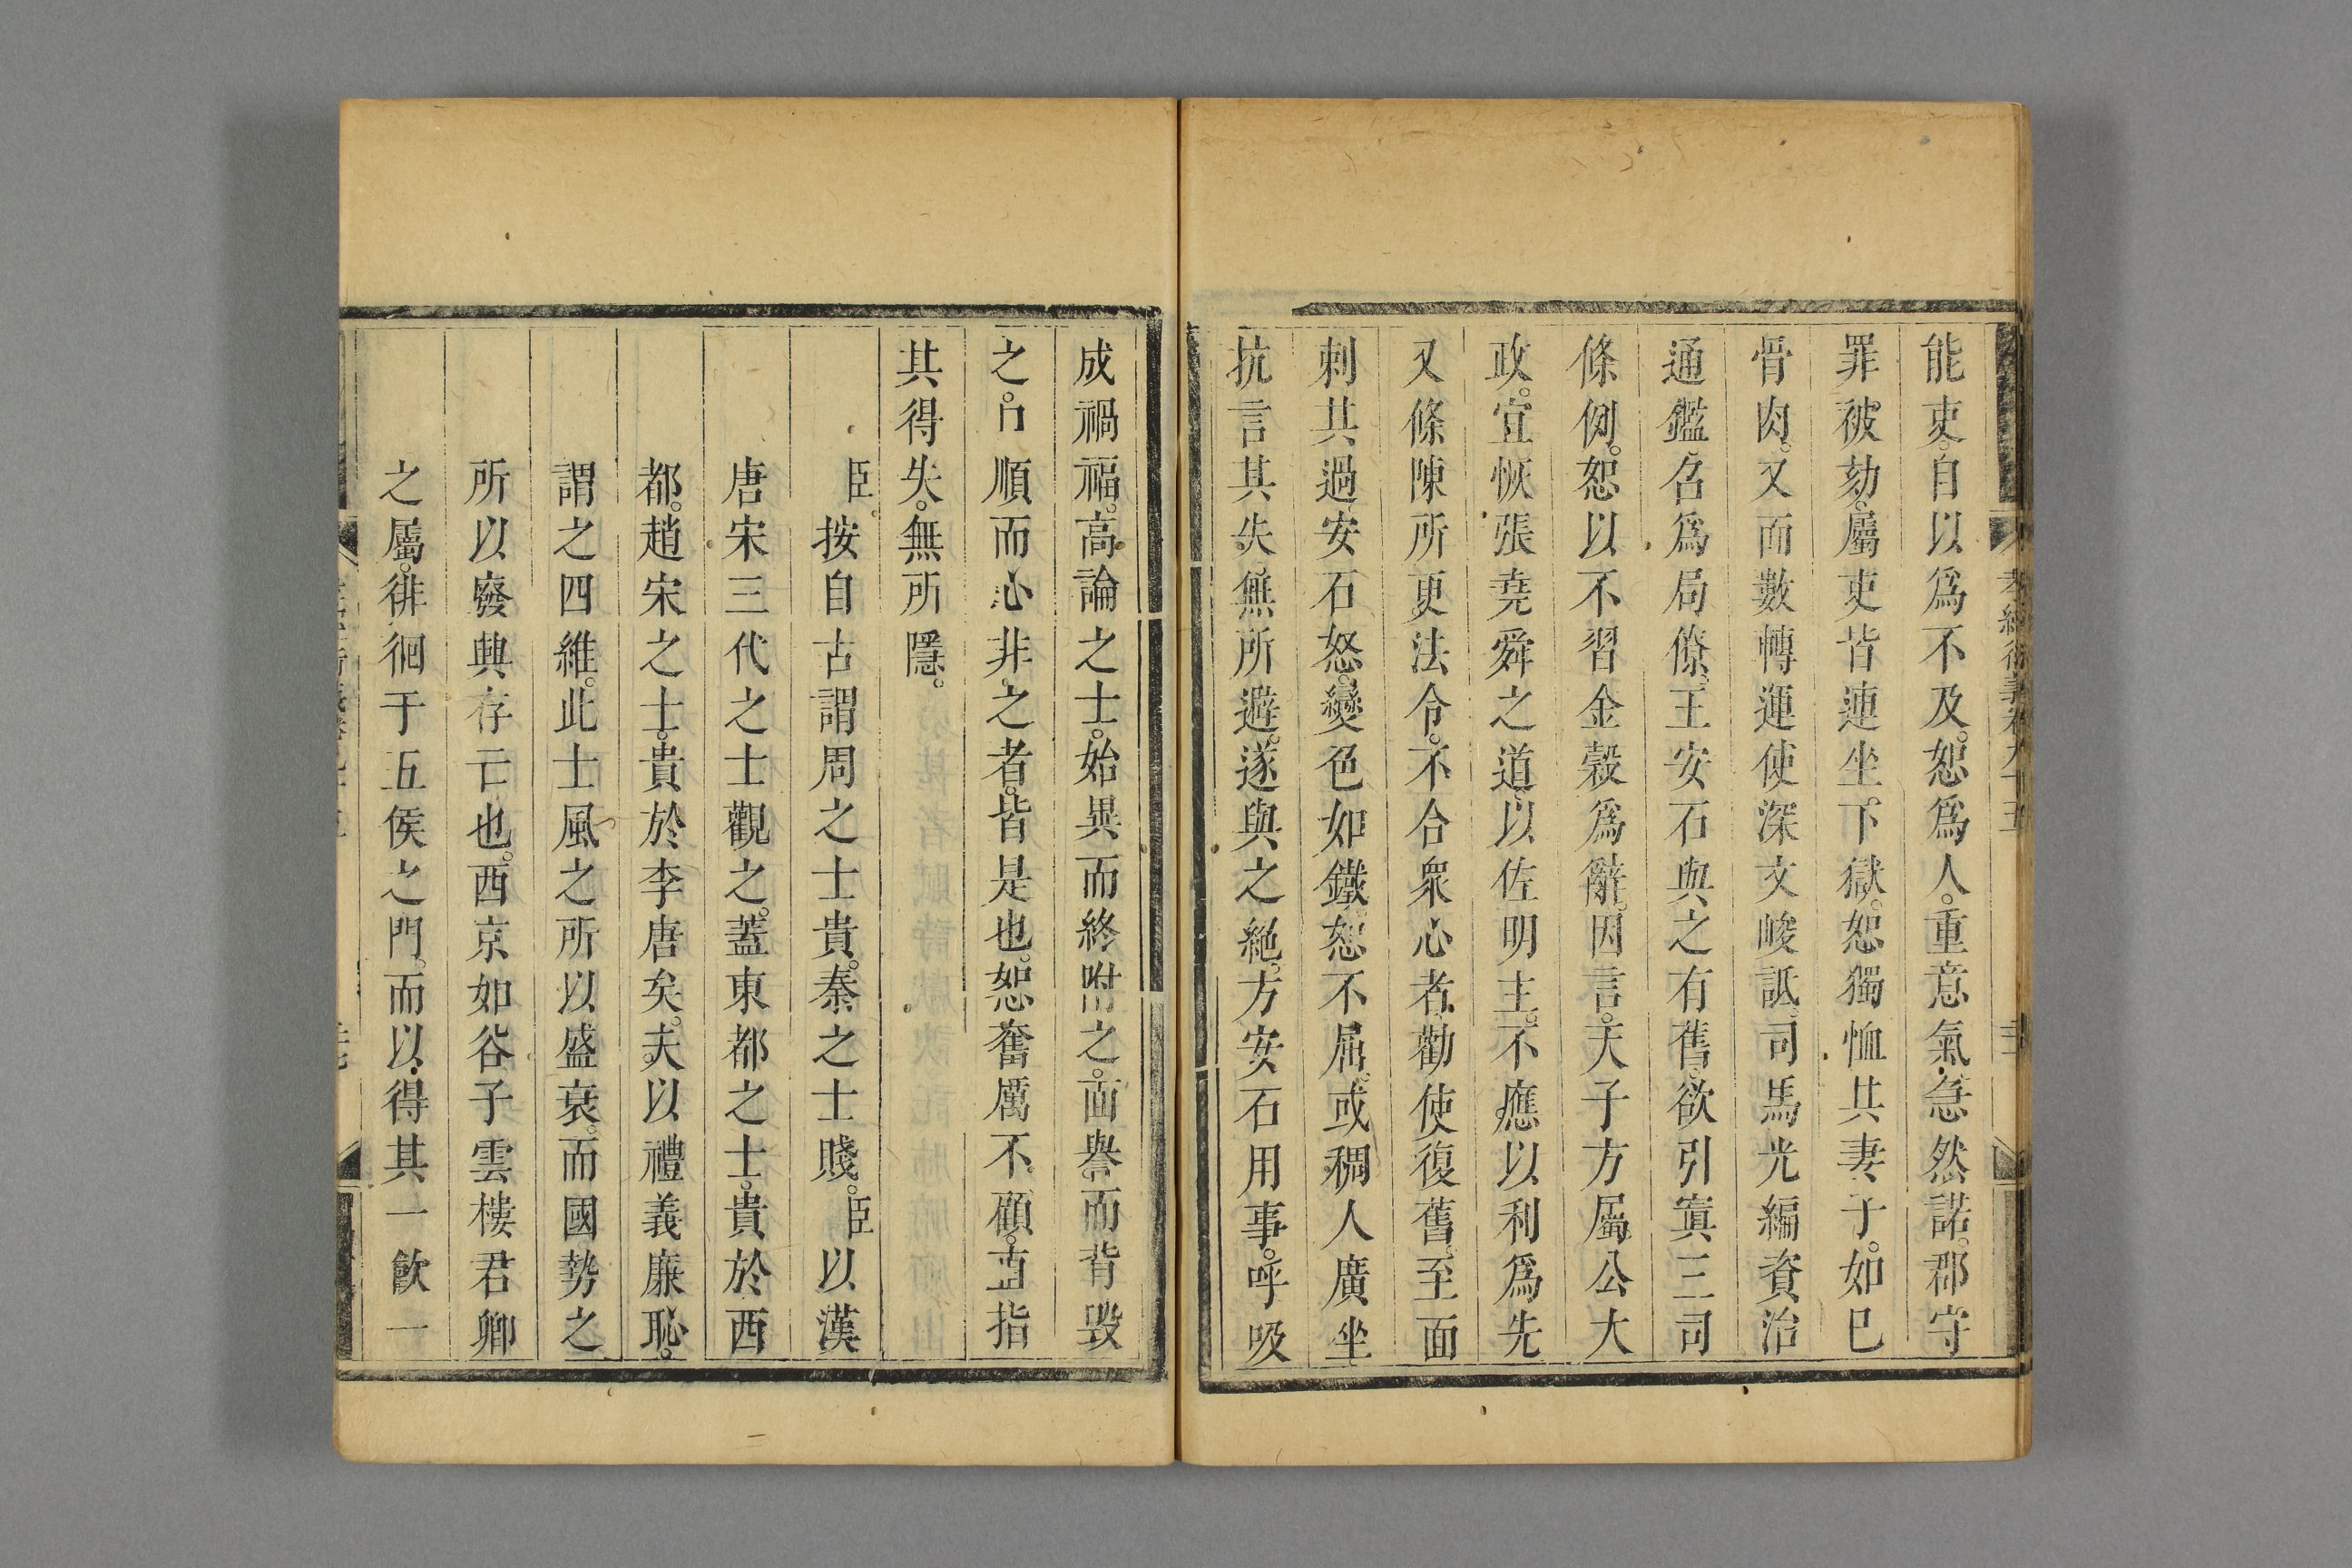 能吏。自以爲不及。恕爲人。重意氣。急然諾。郡守
罪被劾。屬吏皆連坐下獄。恕獨恤其妻子。如已
骨肉。又面數轉運使深文峻詆。司馬光編資治
通鑑。名爲局僚。王安石與之有舊。欲引寘三司
條例。恕以不習金穀爲辭。因言。天子方屬公大
政。宜恢張堯舜之道。以佐明主。不應以利爲先
又條陳所更法令。不合衆心者。勸使復舊。至面
刺其過。安石怒。變色如鐵。恕不屈。或稠人廣坐
抗言其失。無所避。遂與之絶。方安石用事。呼吸
成禍福。高論之士。始異而終附之。面譽。而背毀
之。口順而心非之者。皆是也。恕奮厲不顧。直指
其得失。無所隱。
臣按自古謂周之士貴。秦之士賤。臣以漢
唐宋三代之士觀之。蓋東都之士。貴於西
都。趙宋之士。貴於李唐矣。夫以禮義廉恥。
謂之四維。此士風之所以盛衰。而國勢之
所以廢興存亡也。西京如谷子雲樓君卿
之屬。徘徊于五侯之門。而以得其一飮一